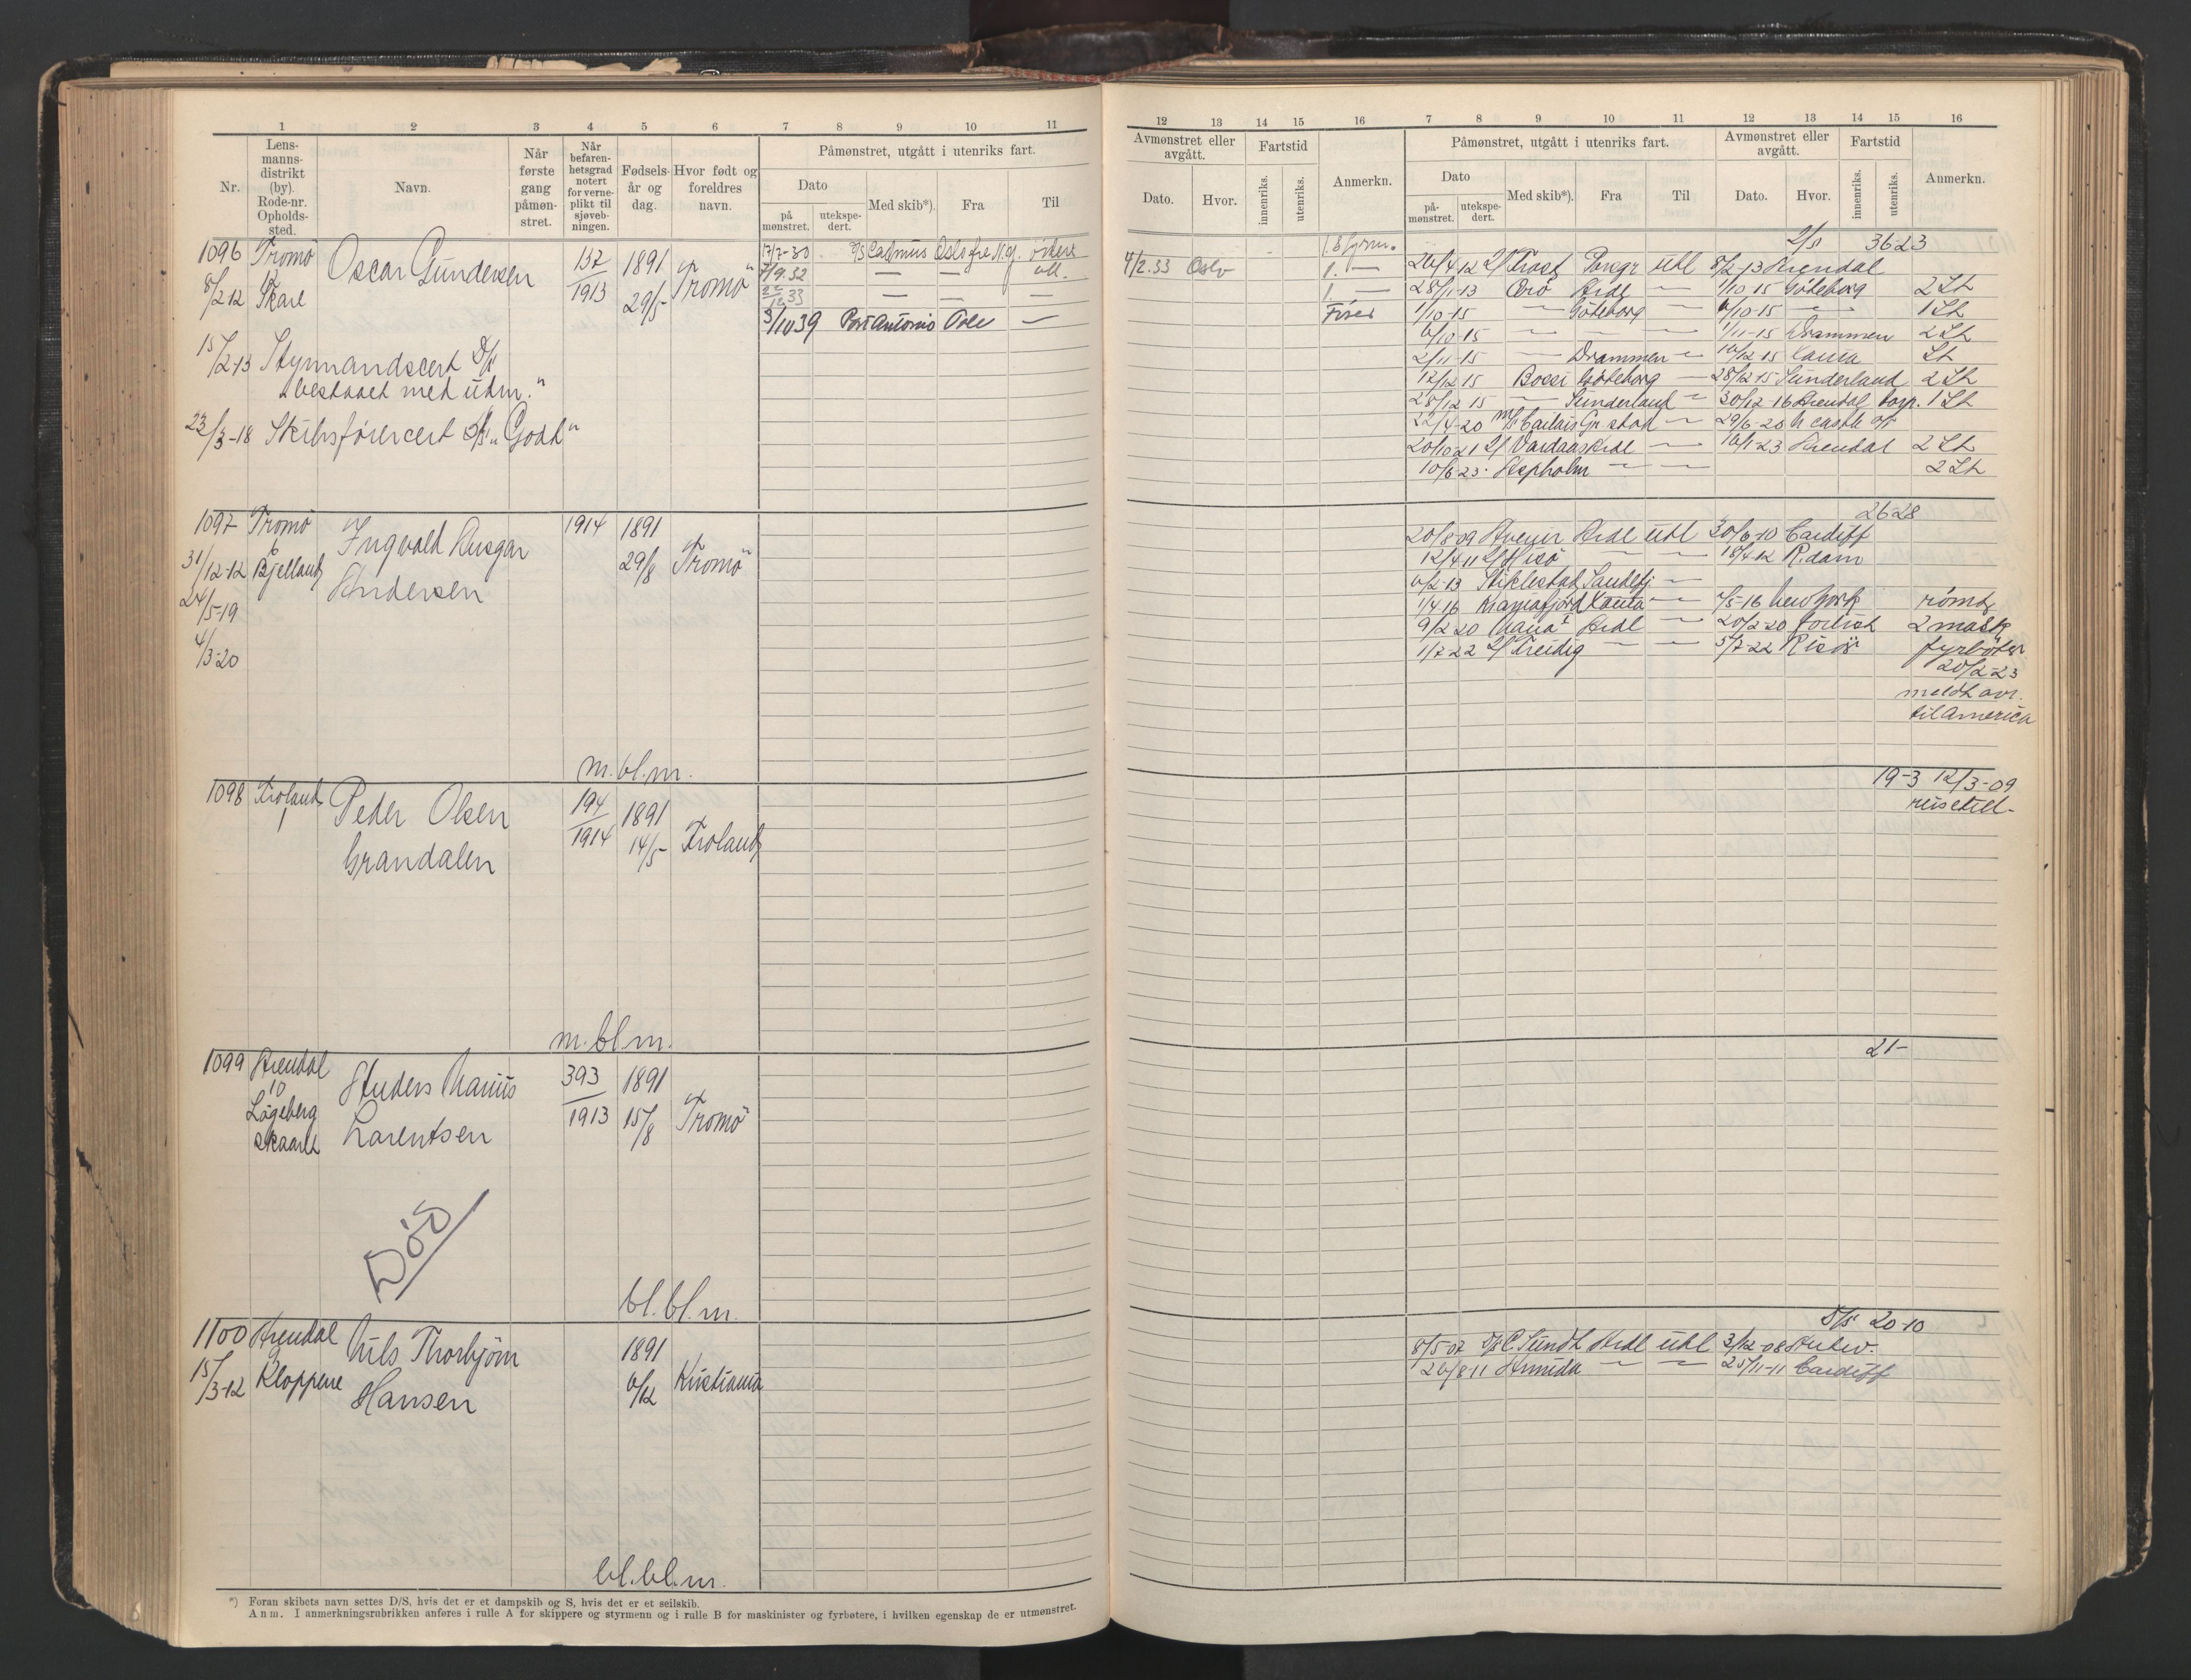 1 2 3 4 5 6 7 8 9 10 11
Nr.
Lensmannsdistrikt (by). Rode-nr. Oppholdssted.
Navn.
Når første gang påmønstret.
Når befarenhetsgrad notert for verneplikt til sjøvebningen.
Fødselsår og dag.
Hvor født og foreldres navn.
Påmønstret, utgått i utenriks fart.
Dato
på mønstret.
utekspedert.
Med skib*).
Fra
Til
1096 Tromö Oscar Gundersen 137 1891 Tromö
12
8/2 12 Skare 1913 29/5
17/7-30 D/S Cadmus Oslo
7/9.32 — —
— — —
3/10 39 Port Antonio Oslo —
15/2-13 Styrmandscert
bestaaet med udm."
23/3-18 Skibsförercert "Godt"
1097 Tromö Ingvald Ansgar 1914 1891
6
31/12-12 Bjelland Andersen 29/8 Tromö
24/5-19
4/3-20
m.bl.m.
1098 Froland Peder Olsen 194 1891
1
Grandalen 1914 14/5 Froland
m.bl.m.
1099 Arendal Anders Marius 393 1891
10
Lögeberg Larentsen 1913 15/8 Tromö
skaaret
Död
bl.bl.m.
1100 Arendal Nils Thorbjörn 1891
9
15/3-12 Kloppene Hansen 6/12 Kristiania
bl.bl.m.
*) Foran skibets navn settes D/S, hvis det er et dampskib og S, hvis det er et seilskib.
Anm. I anmerkningsrubrikken anføres i rulle A for skippere og styrmenn og i rulle B for maskinister og fyrbøtere, i hvilken egenskap de er utmønstret.
12 13 14 15 16 7 8 9 10 11 12 13 14 15 16
Avmønstret eller avgått.
Dato.
Hvor.
Fartstid
innenriks.
utenriks.
Anmerkn.
Påmønstret, utgått i utenriks fart.
Dato
på-mønstret.
utekspedert.
Med skib*).
Fra
Til
Avmønstret eller avgått.
Dato.
Hvor.
Fartstid
innenriks.
utenriks.
Anmerkn.
3623
4/2.33 Oslo 1. —
26/4 12 Trast Porsgr utl 8/2-13 Arendal
28/1-13 Orö Ardl — 1/10-15 Göteborg 2 St
1/10-15 — Göteborg — 6/10-15 — 1 St
6/10-15 — — — 1/11-15 Drammen 2 St
2/11-15 — Drammen — 16/12-15 St
17/12 15 Göteborg — 28/12-15 Sunderland 2 St
28/12 15 — Sunderland — 30/12-16 Arendal 1 St
22/4-20 — 29/6-20
20/10 21 Vardaas Ardl — 16/1-23 Arendal 2 St
10/6-23. Aspholm — — 2 St
2628
20/8-09 Ardl utl 30/6-10 Cardiff
12/4 11 Hisö — — 18/4-12 R.dam
6/2-13 Stiklestad Sandefj. —
1/4 16 Kristianiafjord — 7/5-16 New York
9/2 20 Ardl — 20/2-20 forlist 2 mask
1/7-22 Freidig — — 5/7-22 Risör fyrböter
20/2-23
meldt avr.
til America
19-3 12/3-09
reisetill.
21-
20-10
8/5-07 D/S C. Sundt Ardl utl 3/12-08 Antw.
26/8 11 — — 25/11-11 Cardiff